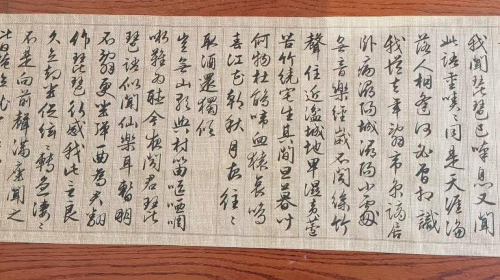 我聞琵琶已嘆息又聞
此語重唧〻同是天涯淪
落人相逢何必曾相識
我從去年辭帝京謫居
臥病潯陽城潯陽小處
無音樂終歲不聞絲竹
聲住近湓城地卑濕黃蘆
苦竹繞宅生其間旦暮聞
何物杜鵑啼血猿哀鳴
春江花朝秋月夜往〻
取酒還獨傾
豈無山歌與村笛嘔啞
嘲哳難為聽今夜聞君琵
琶語似聞仙樂耳暫明
莫辭更坐彈一曲為君翻
作琵琶行感我此言良
久立卻坐促絃〻轉急淒〻
不是向前聲滿座聞之
皆